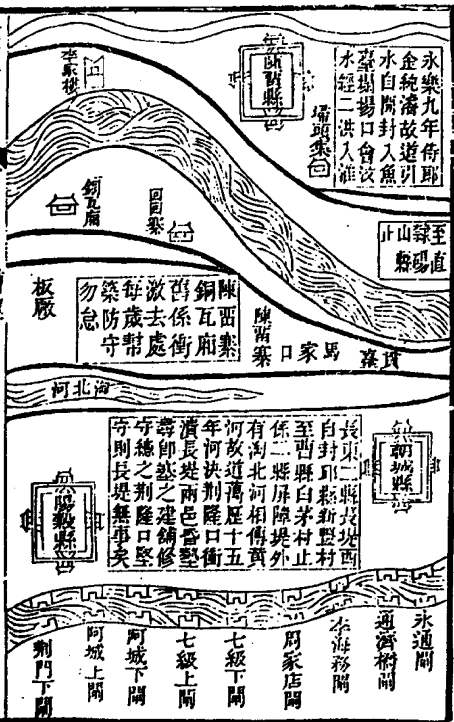 永樂九年侍郎
金純濬故道引
水自開封入魚
臺塌場口會汶
水經二洪入淮
埽頭集
李家樓
至直
隸碭
山縣
止
回回寨
銅瓦廂
馬家口
陳留寨
陳留寨
銅瓦廂
舊係衝
激去處
每歲幇
築防守
勿怠
板厰
淘北河
朝城縣
長東二縣長堤西
自封邱縣新豐村
至曹縣白茅村止
係二縣屏障堤外
有淘北河相傳黃
河故道萬歷十五
年河決荆隆口衝
潰長堤兩邑昏墊
尋卽築之建舖修
守總之荆隆口堅
守則長堤無事矣
陽穀縣
永通閘
通濟橋閘
李海務閘
周家店閘
七級下閘
七級上閘
阿城下閘
阿城上閘
荆門下閘